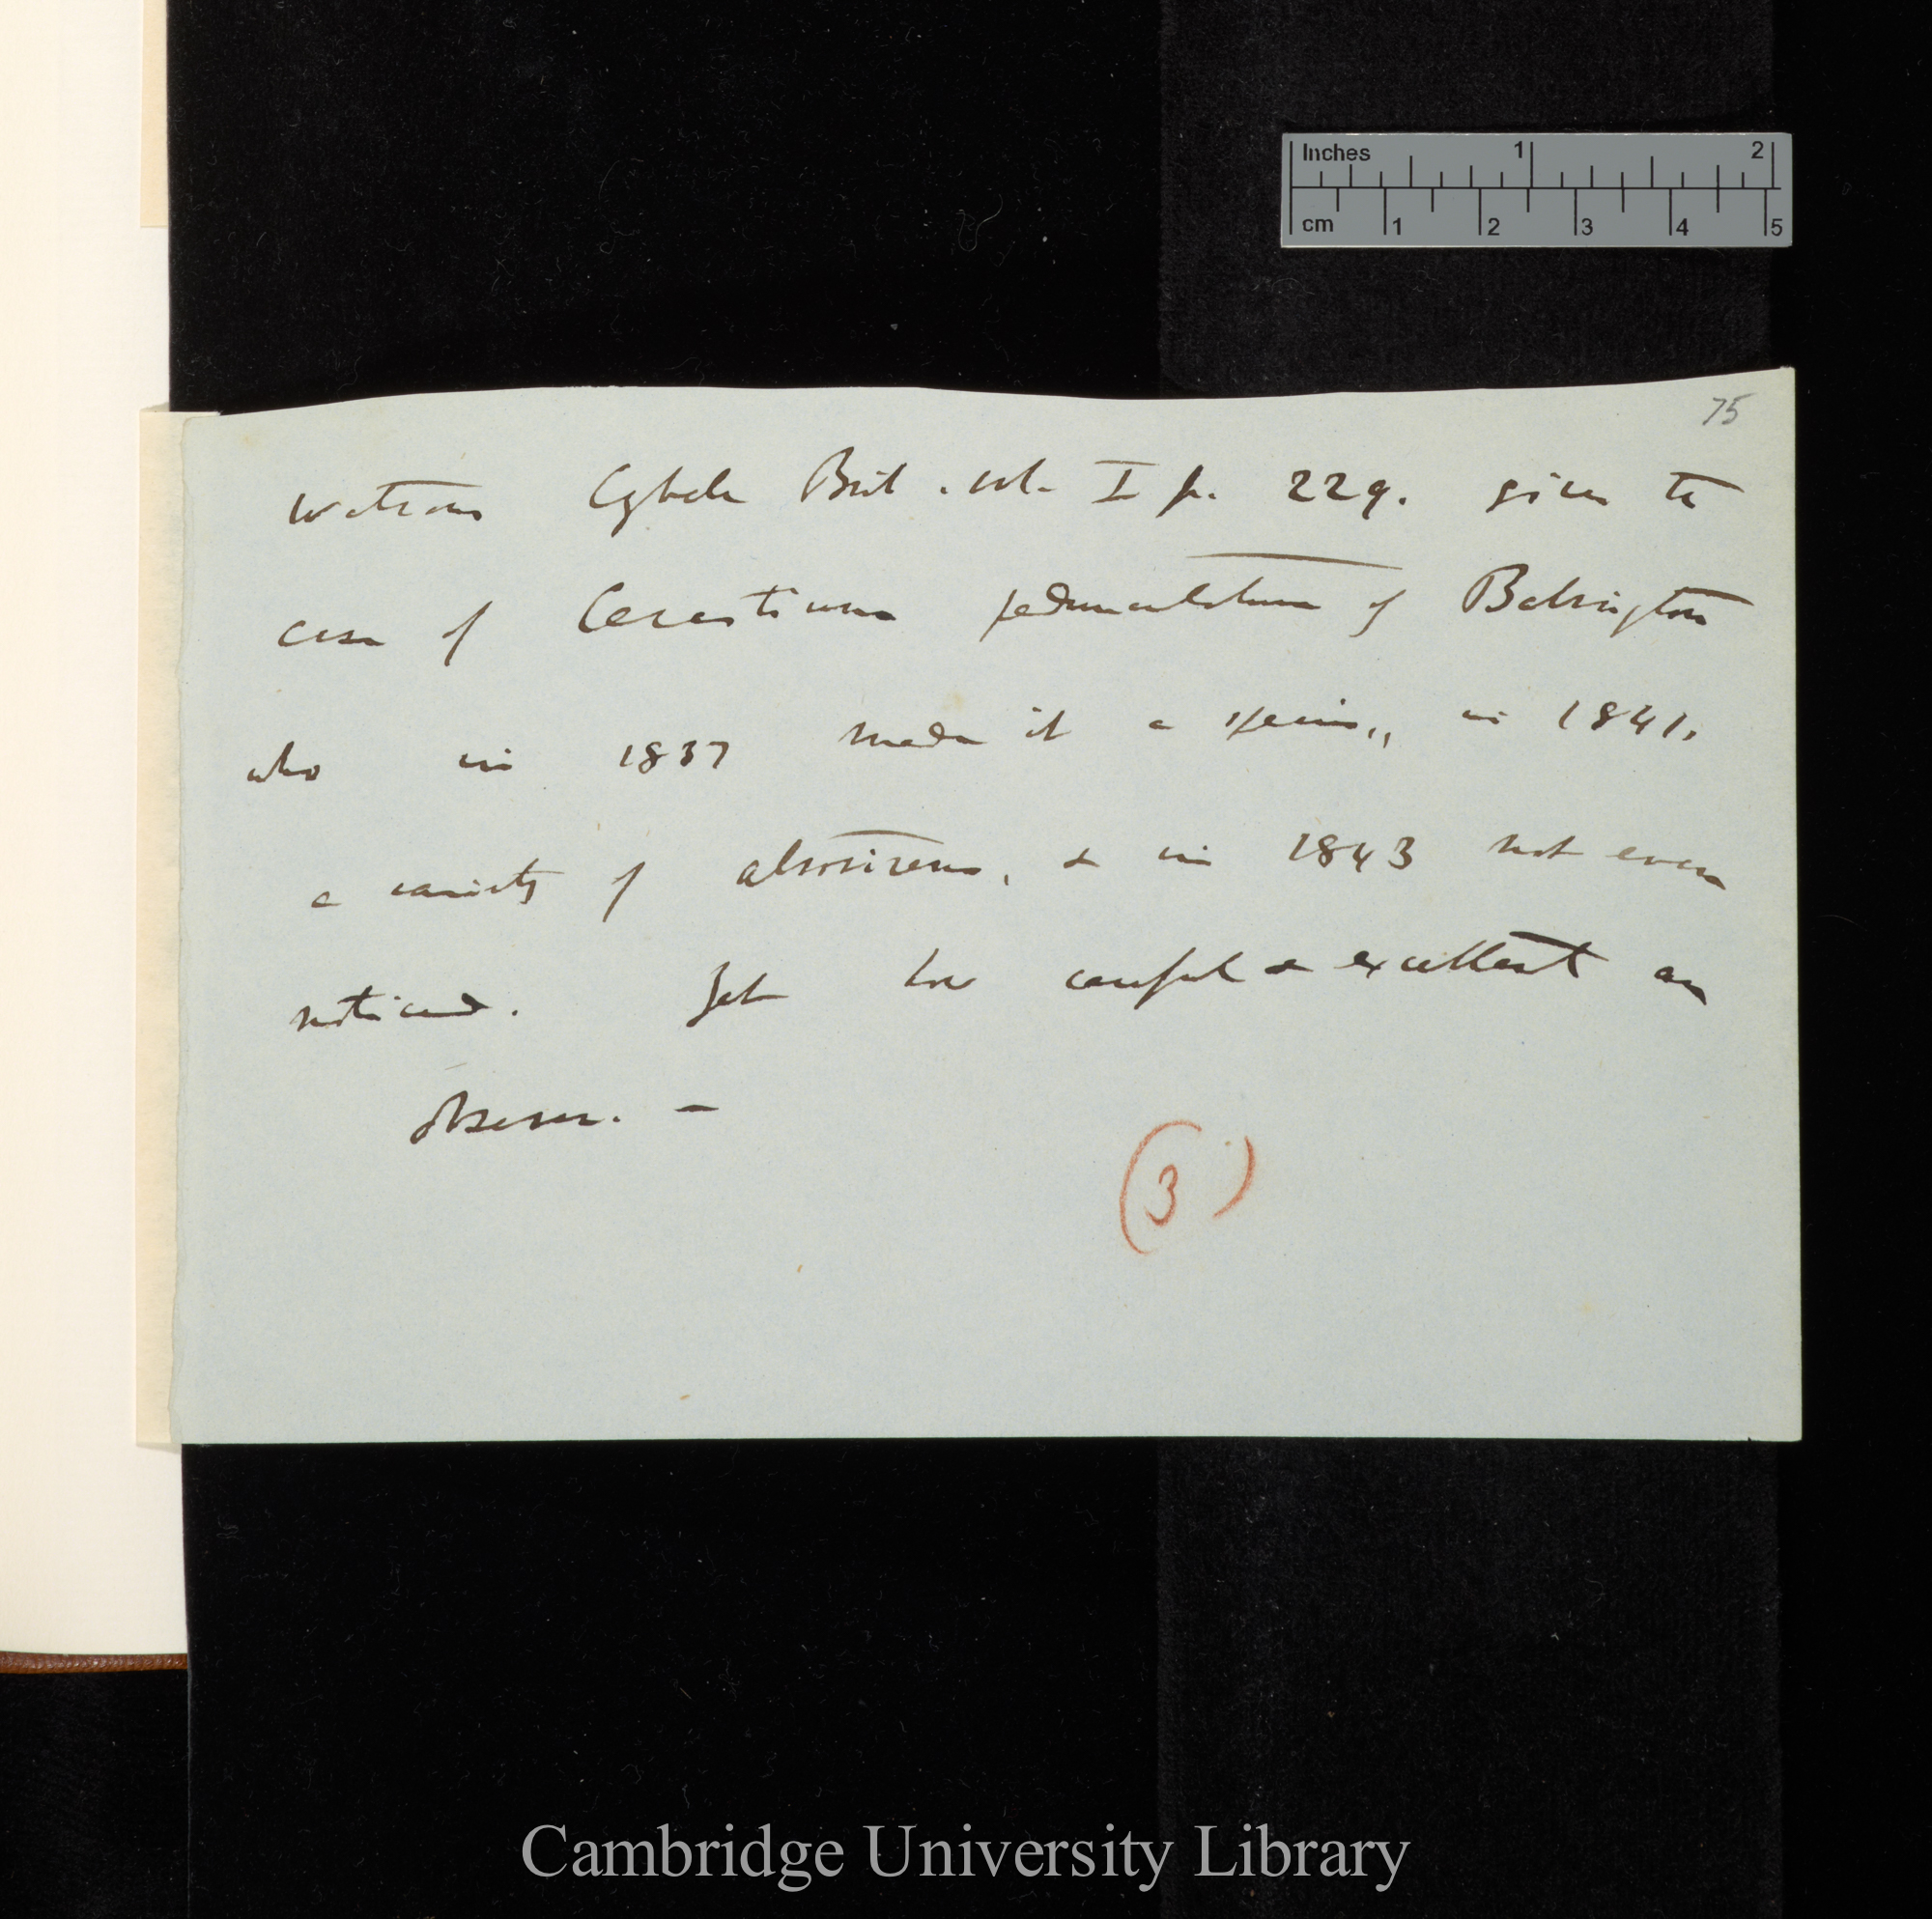 Inches 1 2
cm 1 2 3 4 5
75
Watson Cybele Brit. vol. I p. 229. gives the
case of Cerastium pedunculatum of Babington
who in 1837 made it a species,, in 1841,
a variety of atrovirens, & in 1843 not even
noticed. Yet how careful & excellent an
observer. —
(3)
Cambridge University Library